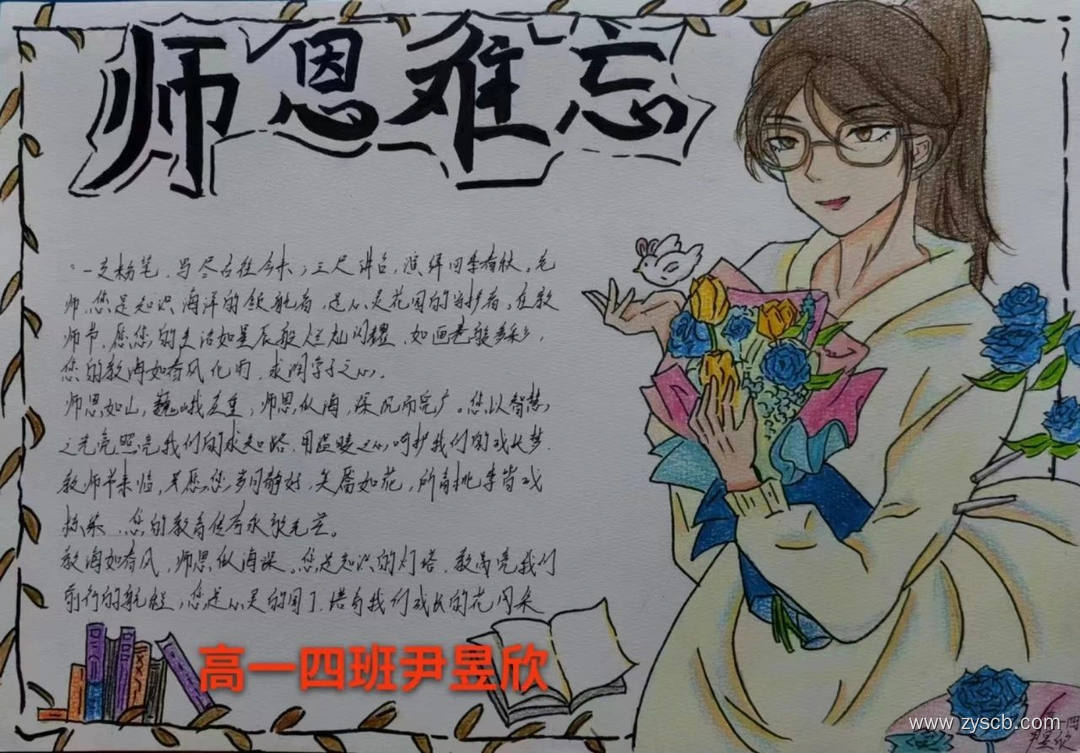 师恩难忘
一支粉笔,写尽古往今来;三尺讲台,演绎四季春秋。老
师,您是知识海洋的领航者,是心灵花园的守护者。在教
师节,愿您的生活如星辰般灿烂闪耀,如画卷般多彩,
您的教诲如春风化雨,滋润学子之心。
师恩如山,巍峨庄重;师恩似海,深沉而宽广。您以智慧
之光亮照亮我们的求知路,用温暖之心呵护我们的成长梦.
教师节来临,只愿您岁月静好,笑靥如花,所育桃李皆成
栋梁,您的教育传奇永放光芒。
教诲如春风,师恩似海深。您是知识的灯塔,照亮我们
前行的航程,您是心灵的园丁,培育我们成长的花
高一四班尹昱欣
www.zyscb.com